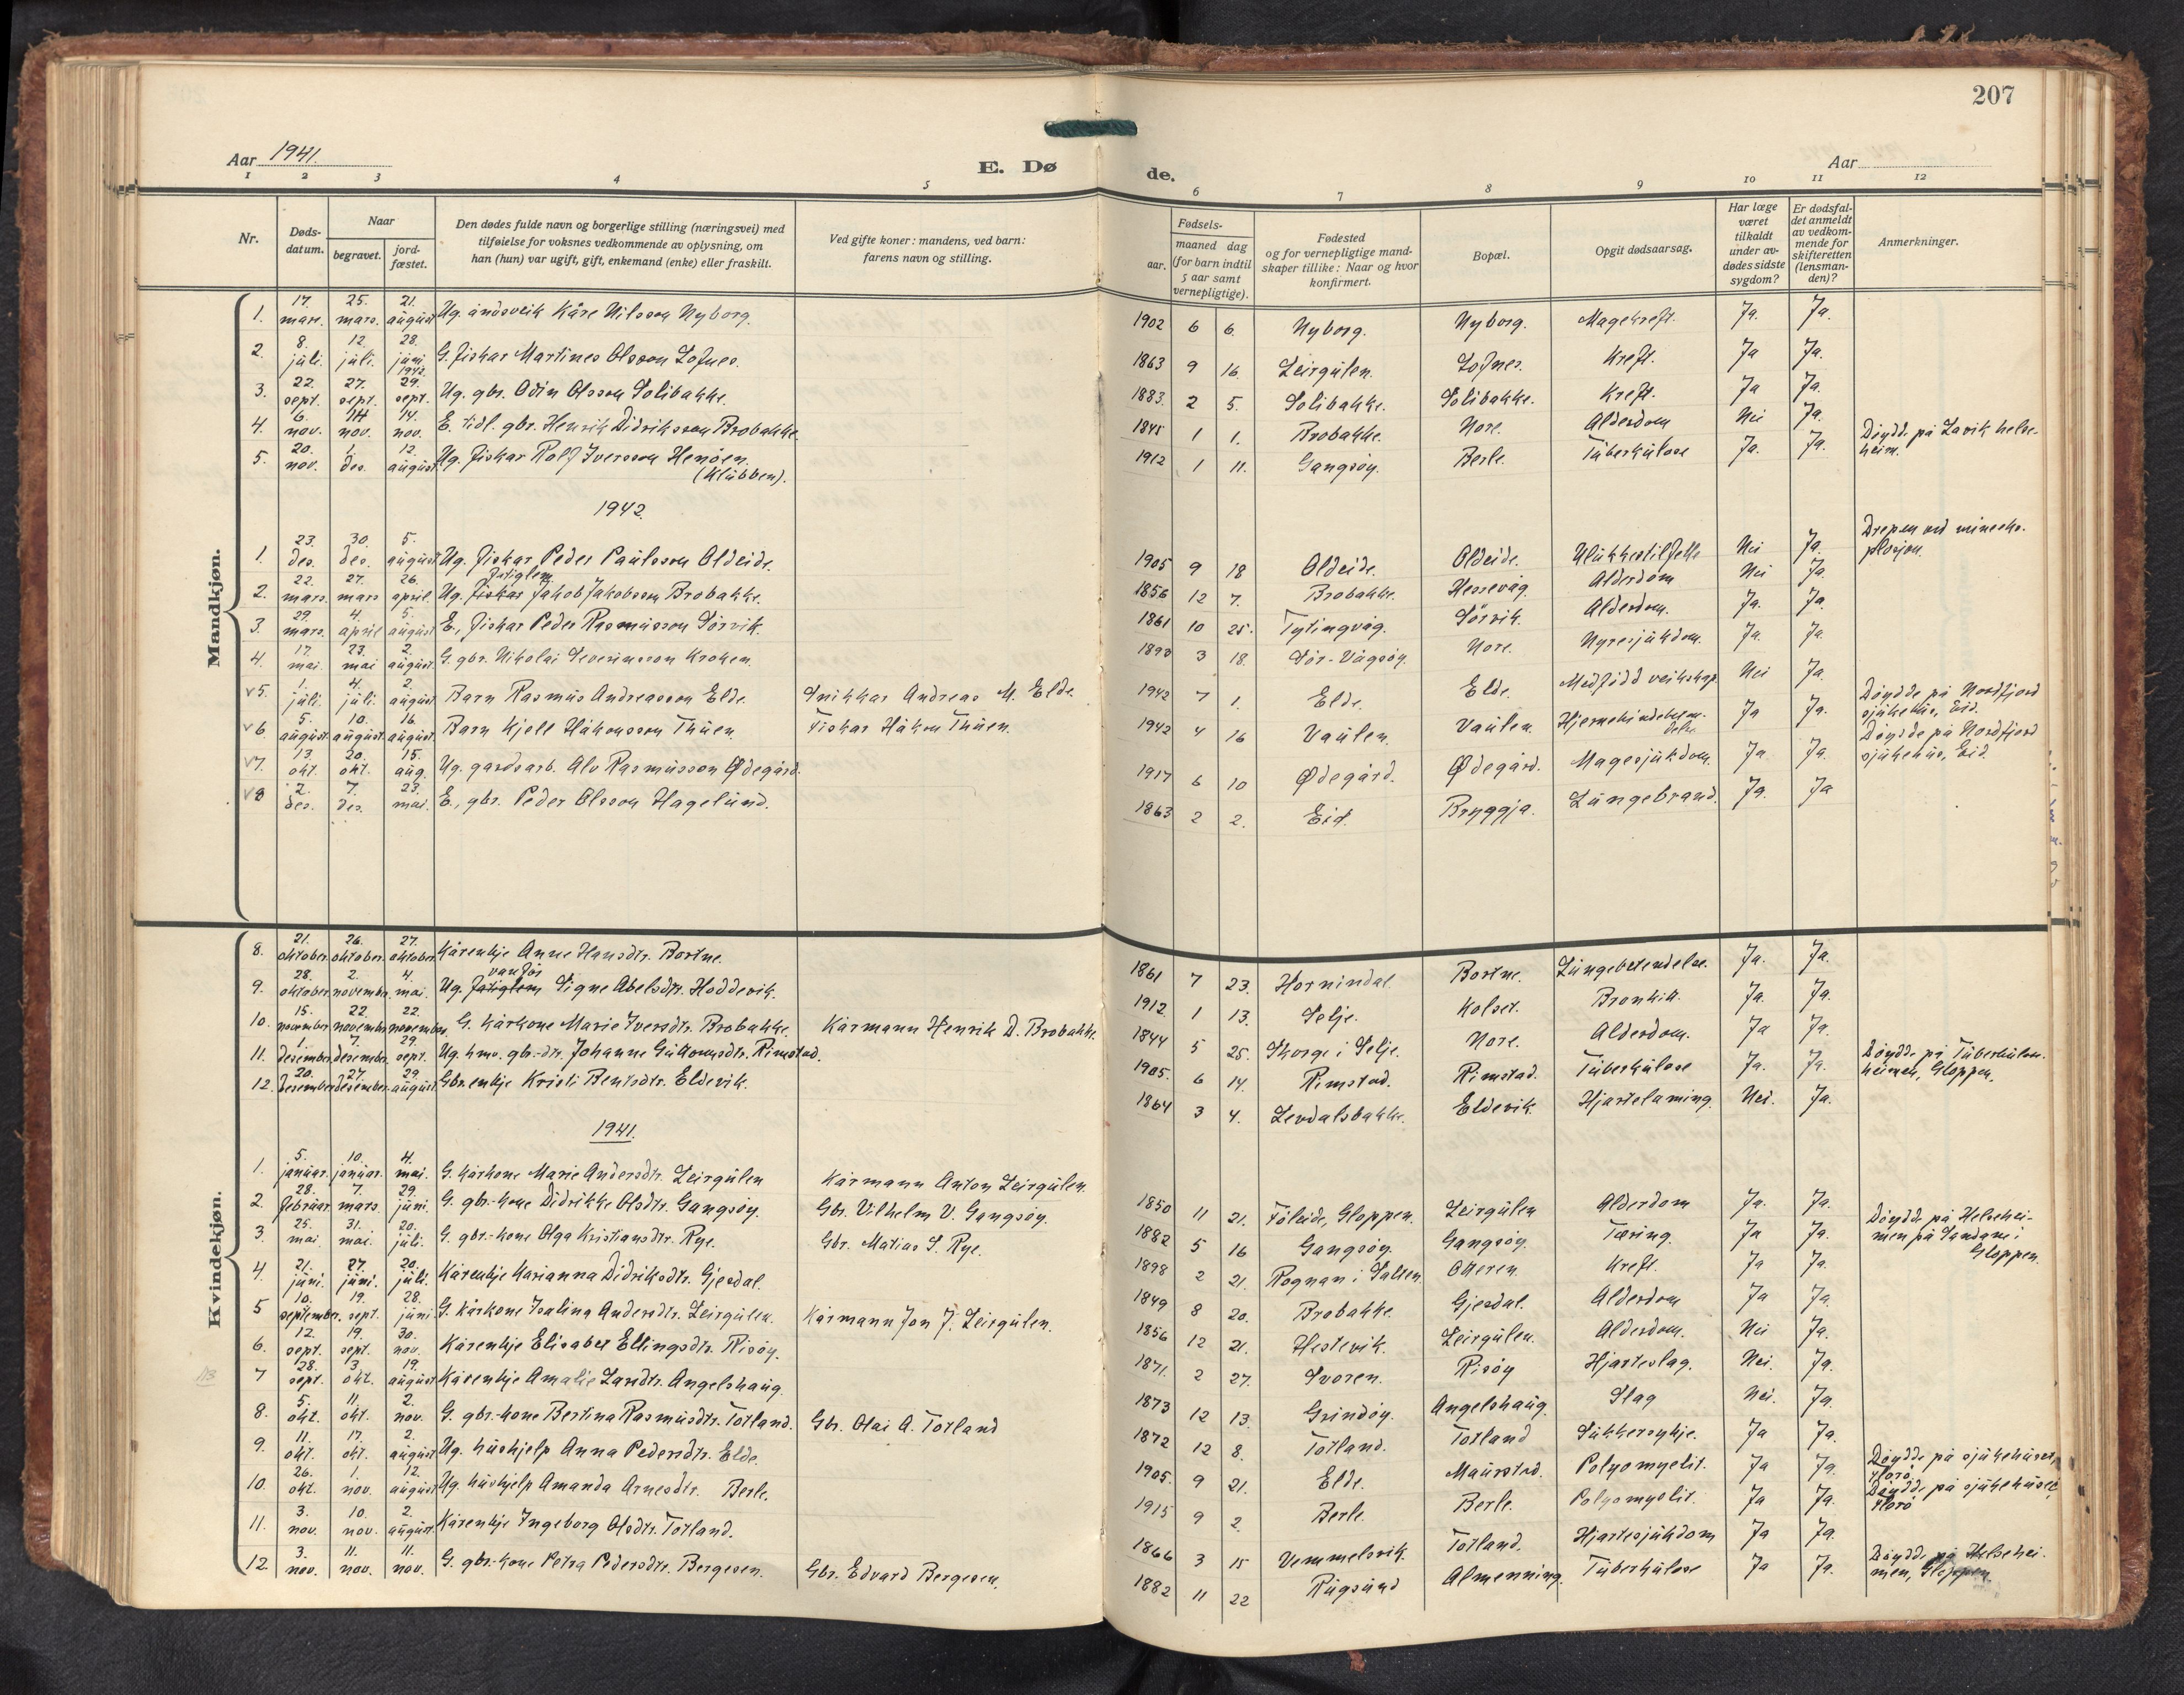 207
Aar 1941.
E. Dø de.
Aar
1 2 3 4 5 6 7 8 9 10 11 12
Nr.
Døds-datum.
Naar
begravet.
jord-fæstet.
Den dødes fulde navn og borgerlige stilling (næringsvei) med
tilføielse for voksnes vedkommende av oplysning, om
han (hun) var ugift, gift, enkemand (enke) eller fraskilt.
Ved gifte koner: mandens, ved barn:
farens navn og stilling.
Fødsels-
aar.
maaned dag
(for barn indtil
5 aar samt
vernepligtige).
Fødested
og for vernepligtige mand-
skaper tillike: Naar og hvor
konfirmert.
Bopæl.
Opgit dødsaarsag.
Har læge
været
tilkaldt
under av-
dødes sidste
sygdom?
Er dødsfal-
det anmeldt
av vedkom-
mende for
skifteretten
(lensman-
den)?
Anmerkninger.
Mandkjøn.
1. 17. mars. 25. mars. 21. august Ug. åndsveik Kåre Nilsson Nyborg. 1902 6 6. Nyborg. Nyborg. Magekreft. Ja. Ja.
2. 8. juli. 12. juli. 28. juni 1942. G. fiskar Martines Olsson Lofnes. 1863 9 16. Leirgulen. Lofnes. Kreft. Ja Ja.
3. 22. sept. 27. sept. 29. sept. Ug. gbr. Odin Olsson Solibakke. 1883. 2 5. Solibakke. Solibakke. Kreft. Ja Ja.
4. 6. nov. 14 nov. 14. nov. E. tidl. gbr. Henrik Didriksson Brobakke. 1 1. Brobakke. Nore. Alderdom Nei Ja.
5. 20. nov. 1. des. 12. august. Ug. fiskar Rolf Iversson Henøen (Klubben). 1912 1 11. Gangsøy. Berle. Tuberkulose Ja. Ja. Døydde på Lavik helse-
heim.
1942.
1. 23. des. 30. des. 5. august Ug. fiskar Peder Paulsson Oldeide. 1905 9 18 Oldeide. Oldeide. Ulukkestilfelle Nei Ja. Drepen ved mineeks-
plosjon.
2. 22. mars. 27. mars 26. april. Ug. fiskar fatiglem Jakob Jakobsson Brobakke. 1856 12 7. Brobakke. Hessevåg. Alderdom Nei Ja.
3. 29. mars. 4. april 5. august E., fiskar Peder Rasmusson Sørvik. 1861 10 25. Tytingvåg. Sørvik. Alderdom. Ja. Ja
4. 17. mai. 23. mai 2. august. G. gbr. Nikolai Severinsson Kroken. 3 18. Sør-Vågsøy. Nore. Nyresjukdom. Ja. Ja.
v5. 1. juli. 4. juli. 2. august. Barn Rasmus Andreasson Elde. Snikkar Andreas M. Elde. 1942 7 1. Elde. Elde. Medfødd veikskap. Nei Ja.
v6 5. august. 10. august. 16. august. Barn Kjell Håkonsson Thuen. Fiskar Håkon Thuen. 1942 4 16 Vaulen. Vaulen. Hjernehindebeten-delse. Ja Ja. Døydde på Nordfjord
sjukehus, Eid.
v7. 13. okt. 20. okt. 15. aug. Ug. gardsarb. Alv Rasmusson Ødegård. 1917 6 10 Ødegård. Ødegård. Magesjukdom. Ja Ja. Døydde på Nordfjord
sjukehus, Eid.
v8 2. des. 7. des. 23. mai. E., gbr. Peder Olsson Hagelund. 1863 2 2. Eid. Bryggja. Lungebrand. Ja. Ja
Kvindekjøn.
8. 21. oktober. 26. oktober. 27. oktober. Kårenkje Anne Hansdtr. Bortne. 1861 7 23. Hornindal. Bortne. Lungebetendelse. Ja. Ja.
9. 28. oktober. 2. november. 4. mai. Ug. fatiglem vanfør Signe Abelsdtr. Hoddevik. 1912 1 13. Selje. Kolset. Bronkitt. Ja. Ja.
10. 15. november 22. november 22. november G. kårkone Marie Iversdtr. Brobakke. Kårmann Henrik D. Brobakke. 1844 5 25. Skorge i Selje. Nore. Alderdom. Ja Ja.
11. 1. desember. 7. desember. 29. sept. Ug. hmv. gbr.-dtr. Johanne Guttormsdtr. Rimstad. 1905. 6 14. Rimstad. Rimstad. Tuberkulose Ja. Ja. Døydde på Tuberkulose-
heimen, Gloppen.
12. 20. desember 27. desember 29. august. Gbr.enkje Kristi Bentsdtr. Eldevik. 1864 3 4. Levdalsbakke. Eldevik. Hjartelaming. Nei. Ja.
1941.
1. 5. januar. 10. januar. 4. mai. G. kårkone Marie Andersdtr. Leirgulen Kårmann Anton Leirgulen. 1850 11 21. Føleide, Gloppen. Leirgulen Alderdom Ja. Ja.
2. 28. februar 7. mars. 29. juni. G. gbr.-kone Didrikke Olsdtr. Gangsøy. Gbr. Vilhelm V. Gangsøy. 1882 5 16 Gangsøy. Gangsøy. Tæring. Ja Ja. Døydde på Helsehei-
men på Sandane i
Gloppen.
3. 25. mai 31. mai. 20. juli. G. gbr.-kone Olga Kristiansdtr. Rye. Gbr. Matias S. Rye. 1898 2 21. Rognan i Salten. Otteren. Kreft. Ja Ja.
4. 21. juni. 27. juni. 20. juli. Kårenkje Marianna Didriksdtr. Gjesdal. 1849 8 20. Brobakke. Gjesdal. Alderdom Ja Ja.
5 10. september. 19. sept. 28. juni G. kårkone Isalina Andersdtr. Leirgulen. Kårmann Jon J. Leirgulen. 1856 12 21. Hestevik. Leirgulen. Alderdom. Nei Ja.
6. 12. sept. 19. sept. 30. nov. Kårenkje Elisabet Ellingsdtr. Risøy. 1871. 2 27. Svoren. Risøy Hjarteslag. Nei. Ja.
7 28. sept. 3. okt. 19. august Kårenkje Amalie Larsdtr. Angelshaug. 1873 12 13. Grindøy. Angelshaug. Slag Nei. Ja.
8. 5. okt. 11. okt. 2. nov. G. gbr.-kone Bertina Rasmusdtr. Totland. Gbr. Olai A. Totland 1872 12 8. Totland. Totland Sukkersykje. Ja Ja.
9. 11. okt. 17. okt. 2. august Ug. hushjelp Anna Pedersdtr. Elde. 1905. 9 21. Elde. Maurstad. Polyomyelit. Ja Ja. Døydde på sjukehuset,
Florø.
10. 26. okt. 1. nov. 12. august Ug. hushjelp Amanda Arnesdtr. Berle. 1915 9 2. Berle. Berle. Polyomyelit. Ja Ja. Døydde på sjukehuset
Florø
11. 3. nov. 10. nov. 2. august. Kårenkje Ingeborg Olsdtr. Totland. 1866 3 15 Vemmelsvik. Totland. Hjartesjukdom Ja Ja.
12. 3. nov. 11. nov. 11. nov. G. gbr.-kone Petra Pedersdtr. Bergesen. Gbr. Edvard Bergesen. 1882 11 22 Rugsund Almenning. Tuberkulose Ja Ja. Døydde på Helsehei-
men, Gloppen.